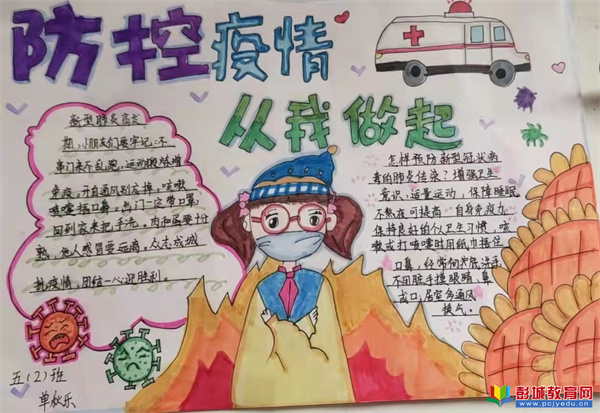 防控疫情
从我做起
新型肺炎高发
期,小朋友们要牢记:不
串门来不乱跑,运动锻炼增
免疫,开窗通风别忘掉,咳嗽
喷嚏捂口鼻,出门一定带口罩,
回到家来把手洗,肉和蛋要十分
熟,他人感冒要远离,众志成城
抗疫情,团结一心迎胜利
怎样预防新型冠状病
毒的肺炎传染?增强卫生
意识,适量运动,保障睡眠
不熬夜可提高自身免疫力
保持良好的个人卫生习惯,咳
嗽或打喷嚏时用纸巾捂住
口鼻,经常彻底洗手,
不用脏手摸眼睛、鼻
或口,居室多通风
换气。
五(2)班
单秋乐
彭城教育网
www.pcjyedu.cn